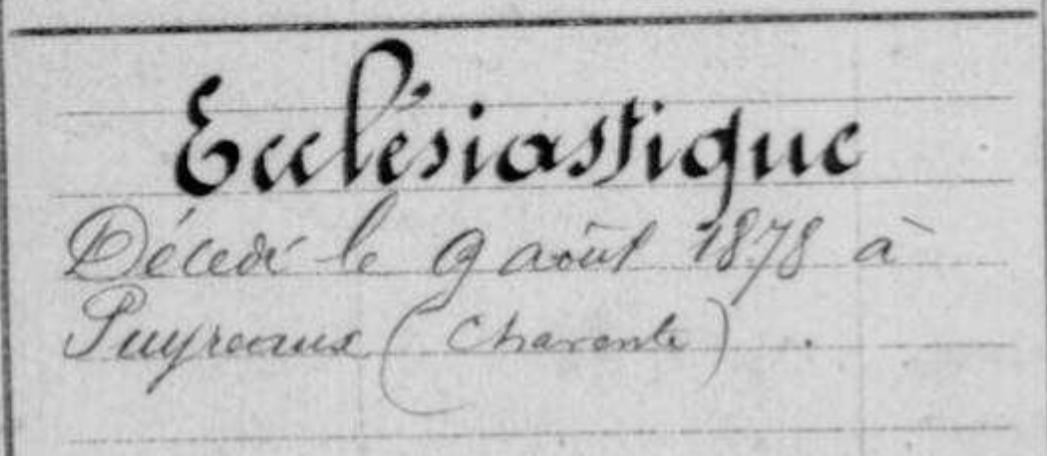 Ecclésiastique
Décedé le 9 août 1878 à
Puyreaux (Charente).